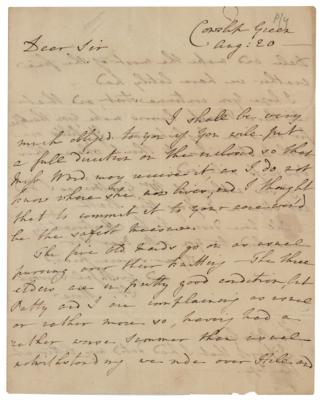 Cowslip Green
Aug: 20 -
Dear Sir
I shall be very
much obliged to you if you will put
a full direction on the inclosed so that
Miss Ward may receive it as I do not
know where she now lives, and I thought
that to commit it to your care would
be the safest measure.
The five old maids go on as usual
purring over their knitting. The three
elders are in pretty good condition, but
Patty and I are complaining as usual
or rather more so, having had a
rather worse summer than usual
notwithstanding we ride over Hill and